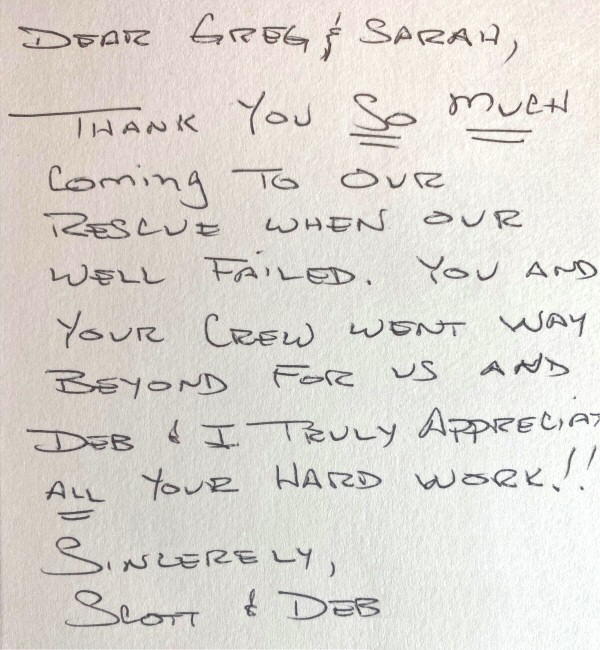 DEAR GREG & SARAH,
THANK YOU SO MUCH
COMING TO OUR
RESCUE WHEN OUR
WELL FAILED. YOU AND
YOUR CREW WENT WAY
BEYOND FOR US AND
DEB & I TRULY APPRECIAT
ALL YOUR HARD WORK!!
SINCERELY,
SCOTT & DEB